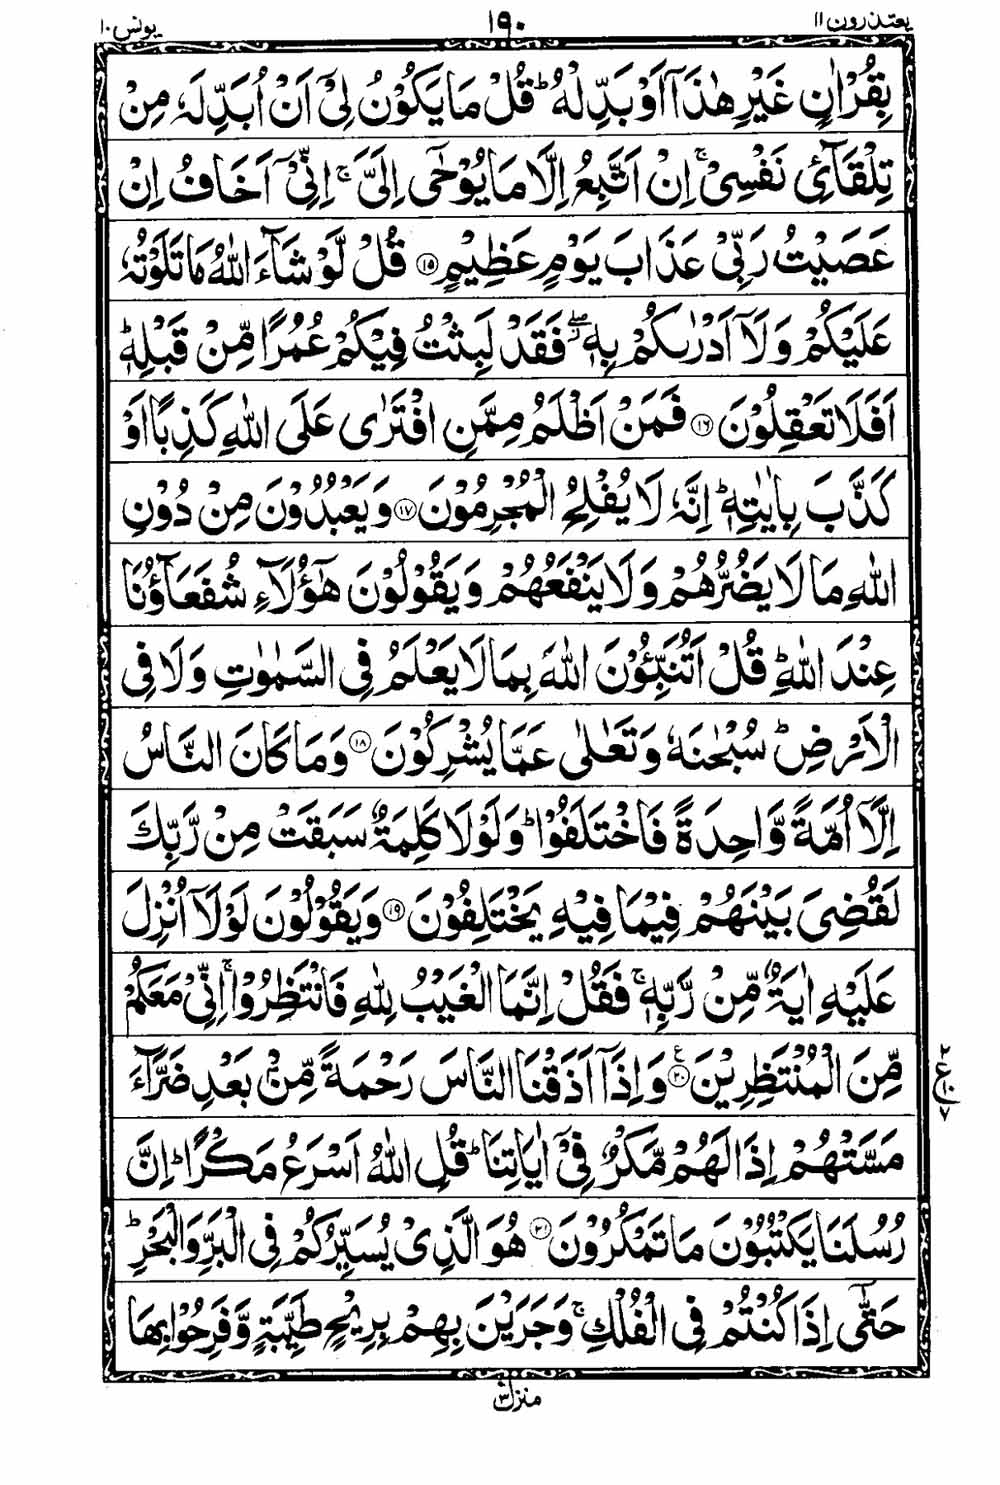 یعتذرون ۱۱ ۱۹۰ یونس ۱۰
بِقُرْاٰنٍ غَيْرِ هٰذَاۤ اَوْ بَدِّلْهُ ؕ قُلْ مَا يَكُوْنُ لِىْۤ اَنْ اُبَدِّلَهٗ مِنْ
تِلْقَآئِ نَفْسِىْ ۚ اِنْ اَتَّبِعُ اِلَّا مَا يُوْحٰۤى اِلَىَّ ۚ اِنِّىْۤ اَخَافُ اِنْ
عَصَيْتُ رَبِّىْ عَذَابَ يَوْمٍ عَظِيْمٍ ۝۱۵ قُلْ لَّوْ شَآءَ اللّٰهُ مَا تَلَوْتُهٗ
عَلَيْكُمْ وَلَاۤ اَدْرٰىكُمْ بِهٖ ۖ فَقَدْ لَبِثْتُ فِيْكُمْ عُمُرًا مِّنْ قَبْلِهٖ ؕ
اَفَلَا تَعْقِلُوْنَ ۝۱۶ فَمَنْ اَظْلَمُ مِمَّنِ افْتَرٰى عَلَى اللّٰهِ كَذِبًا اَوْ
كَذَّبَ بِاٰيٰتِهٖ ؕ اِنَّهٗ لَا يُفْلِحُ الْمُجْرِمُوْنَ ۝۱۷ وَيَعْبُدُوْنَ مِنْ دُوْنِ
اللّٰهِ مَا لَا يَضُرُّهُمْ وَلَا يَنْفَعُهُمْ وَيَقُوْلُوْنَ هٰۤؤُلَآءِ شُفَعَآؤُنَا
عِنْدَ اللّٰهِ ؕ قُلْ اَتُنَبِّـُٔوْنَ اللّٰهَ بِمَا لَا يَعْلَمُ فِى السَّمٰوٰتِ وَلَا فِى
الْاَرْضِ ؕ سُبْحٰنَهٗ وَتَعٰلٰى عَمَّا يُشْرِكُوْنَ ۝۱۸ وَمَا كَانَ النَّاسُ
اِلَّاۤ اُمَّةً وَّاحِدَةً فَاخْتَلَفُوْا ؕ وَلَوْلَا كَلِمَةٌ سَبَقَتْ مِنْ رَّبِّكَ
لَقُضِىَ بَيْنَهُمْ فِيْمَا فِيْهِ يَخْتَلِفُوْنَ ۝۱۹ وَيَقُوْلُوْنَ لَوْلَاۤ اُنْزِلَ
عَلَيْهِ اٰيَةٌ مِّنْ رَّبِّهٖ ۚ فَقُلْ اِنَّمَا الْغَيْبُ لِلّٰهِ فَانْتَظِرُوْا ۚ اِنِّىْ مَعَكُمْ
مِّنَ الْمُنْتَظِرِيْنَ ۝۲۰ وَاِذَاۤ اَذَقْنَا النَّاسَ رَحْمَةً مِّنْۢ بَعْدِ ضَرَّآءَ
مَسَّتْهُمْ اِذَا لَهُمْ مَّكْرٌ فِىْۤ اٰيَاتِنَا ؕ قُلِ اللّٰهُ اَسْرَعُ مَكْرًا ؕ اِنَّ
رُسُلَنَا يَكْتُبُوْنَ مَا تَمْكُرُوْنَ ۝۲۱ هُوَ الَّذِىْ يُسَيِّرُكُمْ فِى الْبَرِّ وَالْبَحْرِ ؕ
حَتّٰۤى اِذَا كُنْتُمْ فِى الْفُلْكِ ۚ وَجَرَيْنَ بِهِمْ بِرِيْحٍ طَيِّبَةٍ وَّفَرِحُوْا بِهَا
منزل ۳